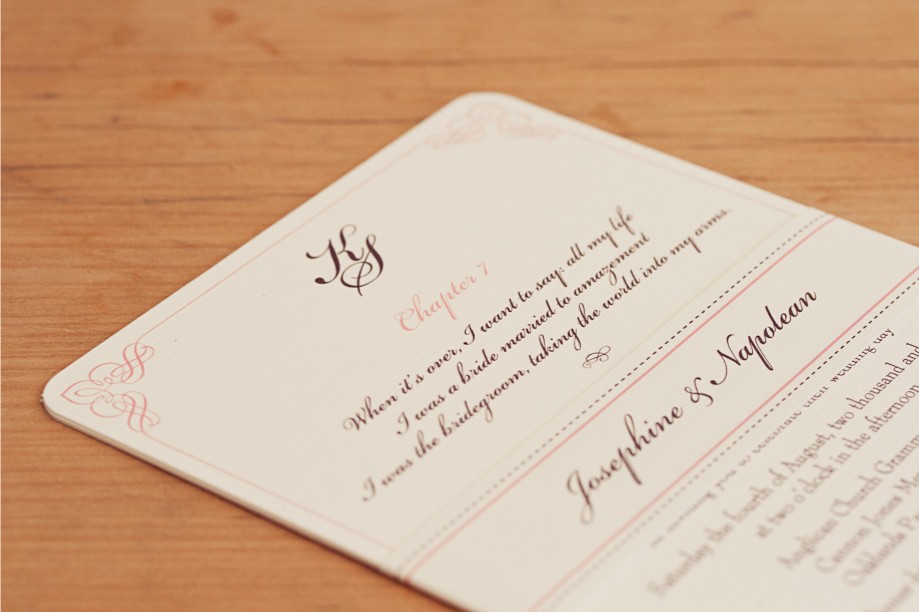 KS
Chapter 7
When it's over, I want to say: all my life
I was a bride married to amazement
I was the bridegroom, taking the world into my arms.
Josephine & Napolean
wedding day
Saturday the fourth of August, two thousand and
at two o'clock in the afternoon
Anglican Church
Cannon Jones
Oaklands